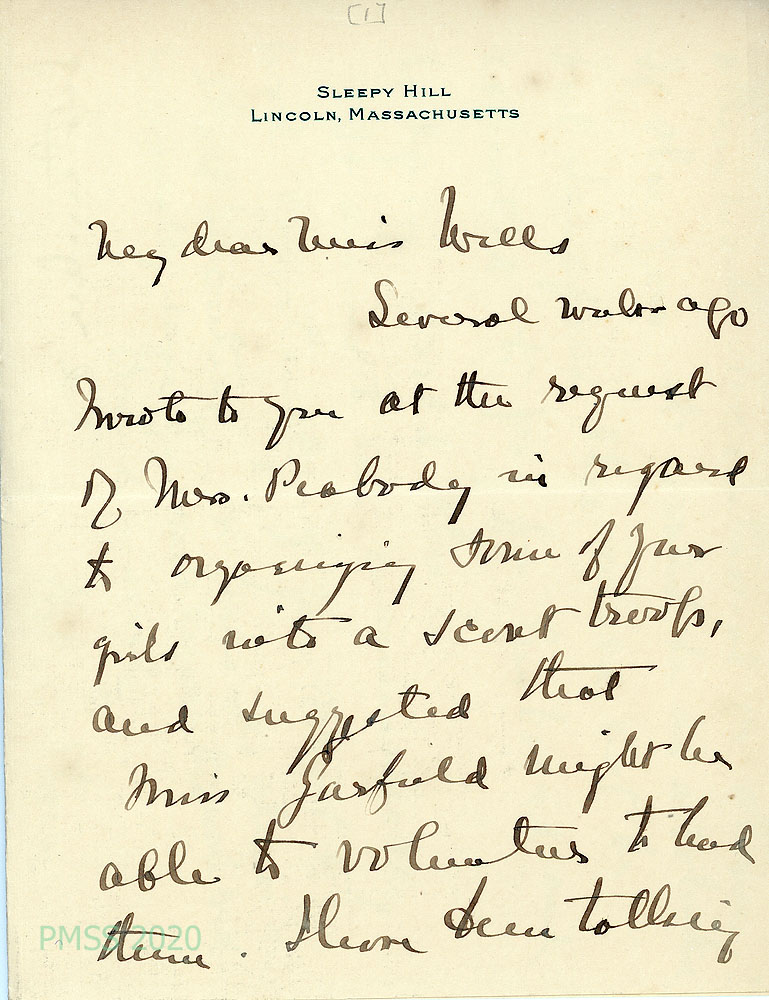 [1]
SLEEPY HILL
LINCOLN, MASSACHUSETTS
My dear Miss Wells
Several weeks ago
I wrote to you at the request
of Mrs. Peabody in regard
to organizing some of your
girls into a scout troop,
and suggested that
Miss Garfield might be
able to volunteer to lead
them. I have been talking
PMSS 2020